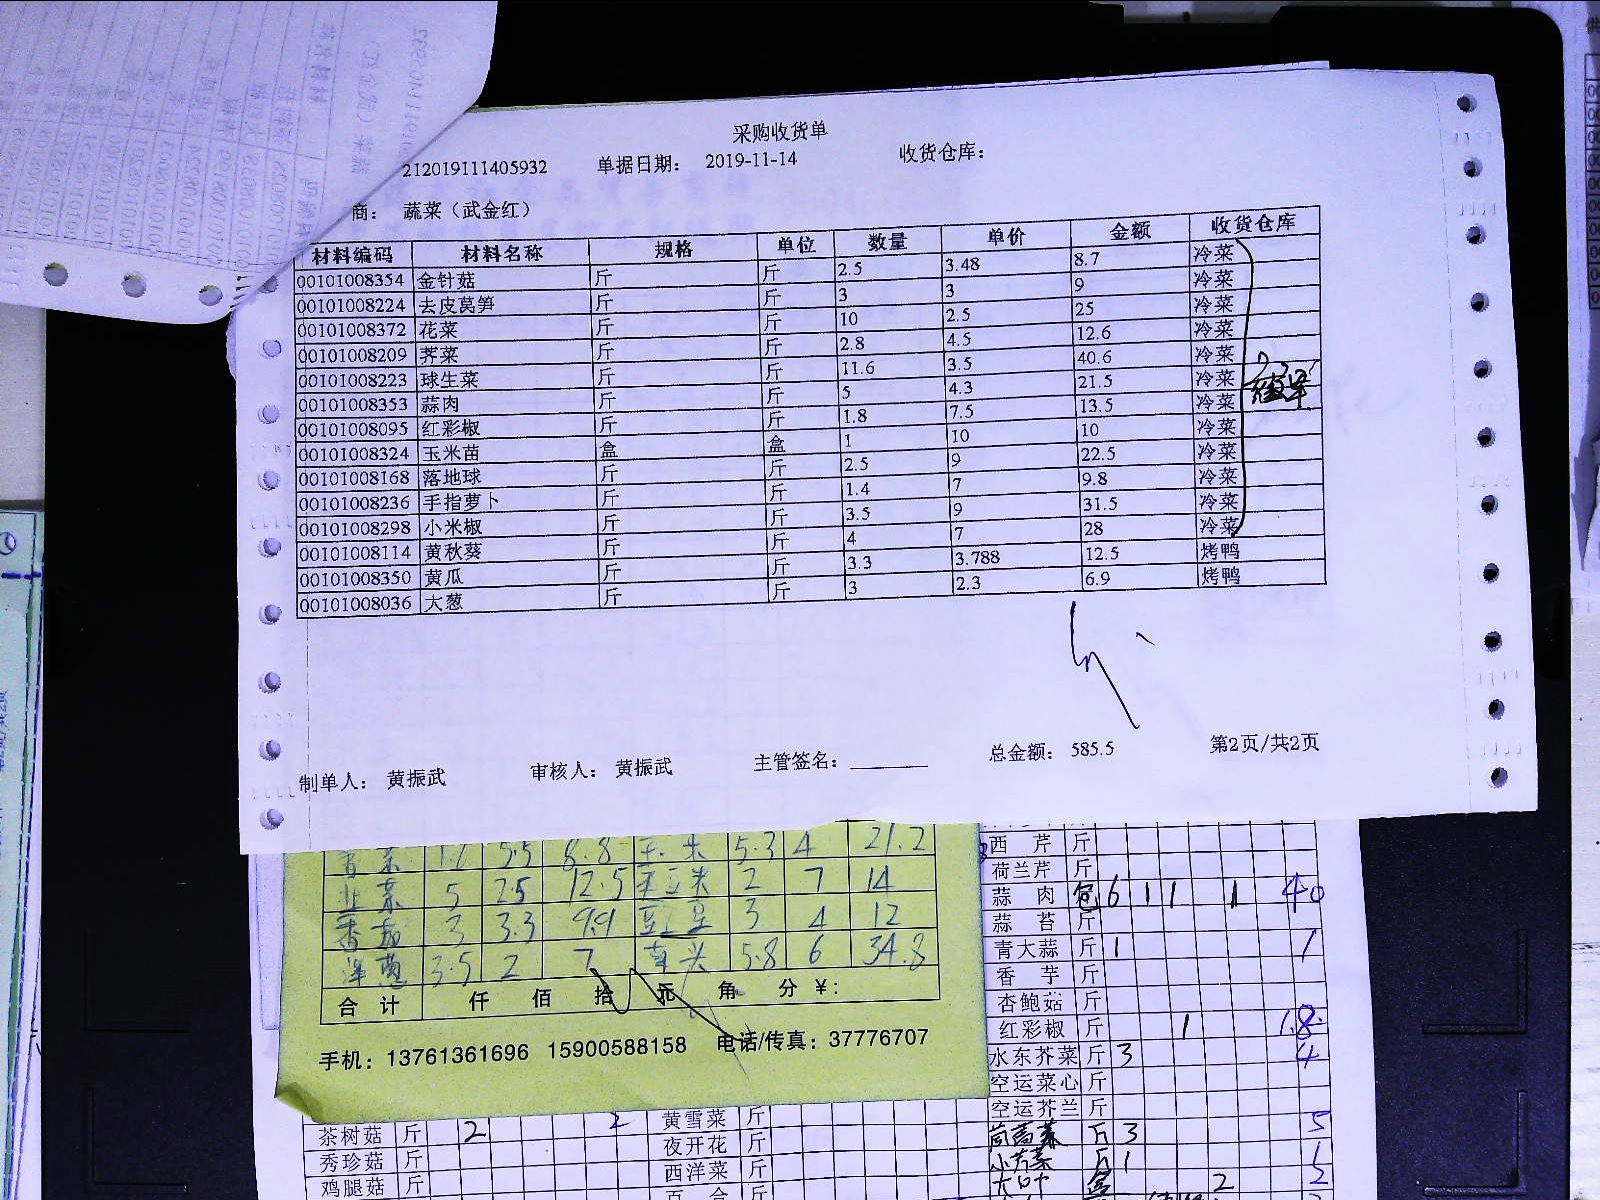 采购收货单
212019111405932 单据日期： 2019-11-14 收货仓库：
商： 蔬菜（武金红）
材料编码 材料名称 规格 单位 数量 单价 金额 收货仓库
00101008354 金针菇 斤 斤 2.5 3.48 8.7 冷菜
00101008224 去皮莴笋 斤 斤 3 3 9 冷菜
00101008372 花菜 斤 斤 10 2.5 25 冷菜
00101008209 荠菜 斤 斤 2.8 4.5 12.6 冷菜
00101008223 球生菜 斤 斤 11.6 3.5 40.6 冷菜
00101008353 蒜肉 斤 斤 5 4.3 21.5 冷菜
00101008095 红彩椒 斤 斤 1.8 7.5 13.5 冷菜
00101008324 玉米苗 盒 盒 1 10 10 冷菜
00101008168 落地球 斤 斤 2.5 9 22.5 冷菜
00101008236 手指萝卜 斤 斤 1.4 7 9.8 冷菜
00101008298 小米椒 斤 斤 3.5 9 31.5 冷菜
00101008114 黄秋葵 斤 斤 4 7 28 冷菜
00101008350 黄瓜 斤 斤 3.3 3.788 12.5 烤鸭
00101008036 大葱 斤 斤 3 2.3 6.9 烤鸭
制单人： 黄振武 审核人： 黄振武 主管签名： 总金额： 585.5 第2页/共2页
5.5 8.8 5.3 4 21.2
韭菜 5 2.5 12.5 2 7 14
番茄 3 3.3 9.9 3 4 12
洋葱 3.5 2 7 5.8 6 34.8
合计 仟 佰 拾 元 角 分 ¥:
手机：13761361696 15900588158 电话/传真：37776707
西芹 斤
荷兰芹 斤
蒜肉 包 6 1 1 1 40
蒜苔 斤
青大蒜 斤 1 1
香芋 斤
杏鲍菇 斤
红彩椒 斤 1 1.8
水东芥菜 斤 3 4
空运菜心 斤
空运芥兰 斤
茼蒿菜 斤 3 5
斤 1 1
2 2
茶树菇 斤 2 2
秀珍菇 斤
鸡腿菇 斤
黄雪菜 斤
夜开花 斤
西洋菜 斤
百合 斤